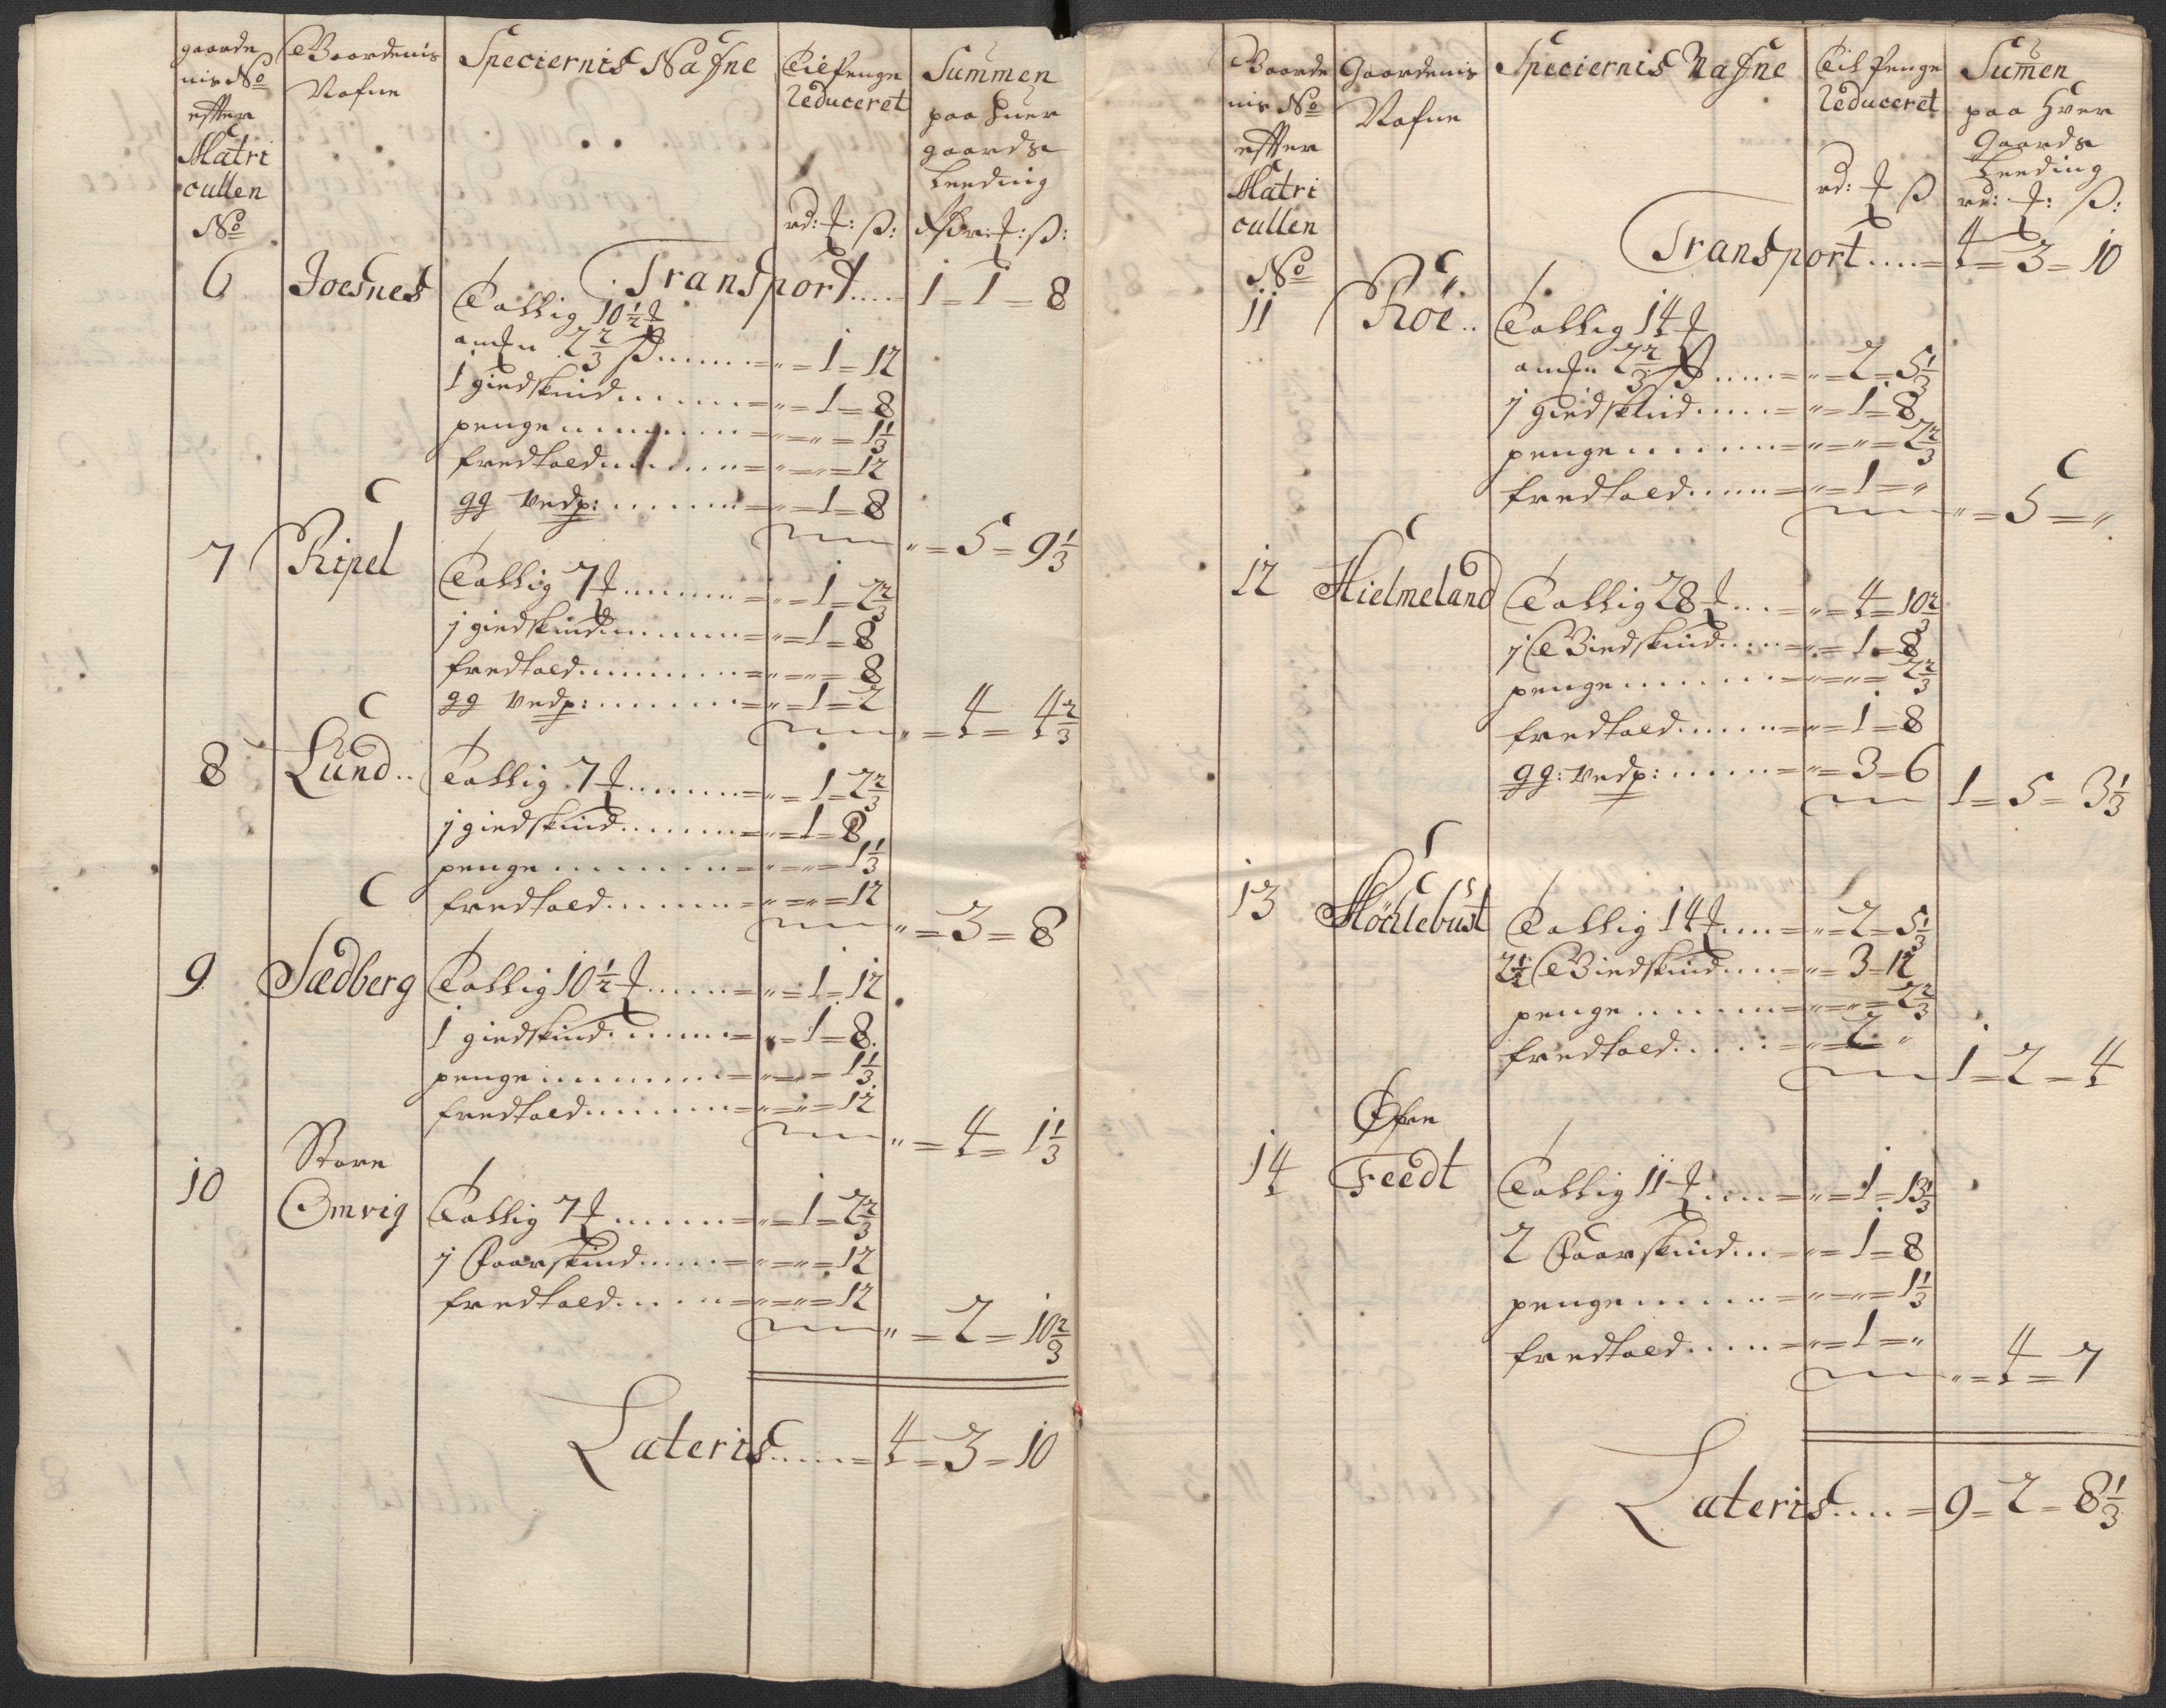 gaarde
nis No
effter
Matri
cullen
No
Gaardenis
Nafne
Speciernis Nafne
Til Penge
reduceret
rd: ₰: ß:
Summen
paa huer
gaards
Leeding
Rdr: ₰: ß:
Transport .... 1 = 1 = 8
6 Joesnes Tallig 10½ ₰
anden 2⅔ ß ...... = " = 1 = 12
1 giedskind ....... = " = 1 = 8
penge .......... = " = " = 1⅓
fredtold ........ = " = " = 12
gg vedp: ....... = " = 1 = 8
" = 5 = 9⅓
7 Ripel Tallig 7 ₰ ....... = " = 1 = 2⅔
j giedskind ....... = " = 1 = 8
fredtold ......... = " = " = 8
gg vedp: ........ = " = 1 = 2
" = 4 = 4⅔
8 Lund .. Tallig 7 ₰ ....... = " = 1 = 2⅔
j giedskind ....... = " = 1 = 8
penge .......... = " = " = 1⅓
fredtold ....... = " = " = 12
" = 3 = 8
9 Sædberg Tallig 10½ ₰ ...... = " = 1 = 12
1 giedskind ....... = " = 1 = 8
penge ......... = " = " = 1⅓
fredtold ........ = " = " = 12
" = 4 = 1⅓
10 Store
Omvig Tallig 7 ₰ ....... = " = 1 = 2⅔
j Faarskind ..... = " = " = 12
fredtold ..... = " = " = 12
" = 2 = 10⅔
Lateris ..... = 4 = 3 = 10
Gaarde
nis No
effter
Matri
cullen
No
Gaardenis
Nafne
Speciernis Nafne
Til Penge
reduceret
rd: ₰ ß
Sum̄en
paa Hver
Gaards
Leeding
rd: ₰: ß:
Transport .... = 4 = 3 = 10
11 Röe .. Tallig 14 ₰
anden 2⅔ ß ..... = " = 2 = 5⅓
j giedskind ..... = " = 1 = 8
penge ....... = " = " = 2⅔
fredtold ..... = " = 1 = "
" = 5 = "
12 Hielmeland Tallig 28 ₰ ... = " = 4 = 10⅔
j Giedskind ..... = " = 1 = 8
penge ....... = " = " = 2⅔
fredtold ...... = " = 1 = 8
gg: vedp: ...... = " = 3 = 6
1 = 5 = 3⅓
13 Höchlebust Tallig 14 ₰ .... = " = 2 = 5⅓
2½ Giedskind ... = " = 3 = 12
penge ...... = " = " = 2⅔
fredtold ..... = " = 2 = "
1 = 2 = 4
14 Øfre
Feedt Tallig 11 ₰ .... = " = 1 = 13⅓
2 Faarskind ... = " = 1 = 8
penge ...... = " = " = 1⅓
fredtold ..... = " = 1 = "
" = 4 = 7
Lateris .... = 9 = 2 = 8⅓